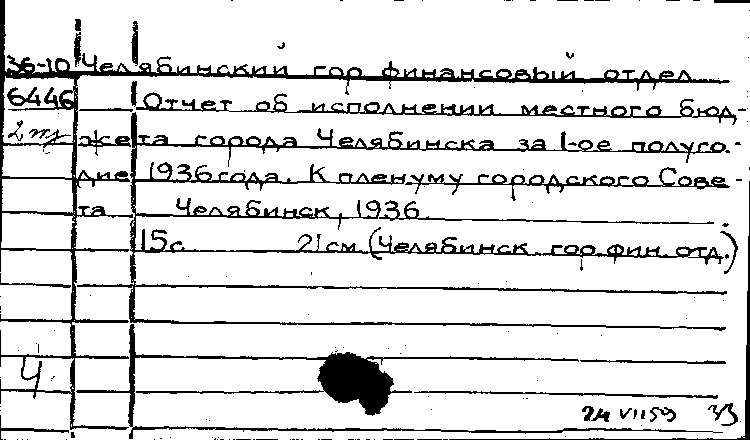 36-10 Челябинский гор. финансовый отдел
6446 Отчет об исполнении местного бюд-
жета города Челябинска за 1-ое полуго-
дие 1936 года. К пленуму городского Сове-
та Челябинск, 1936.
15с. 21см. (Челябинск. гор. фин. отд.)
Ч
24 VII 59